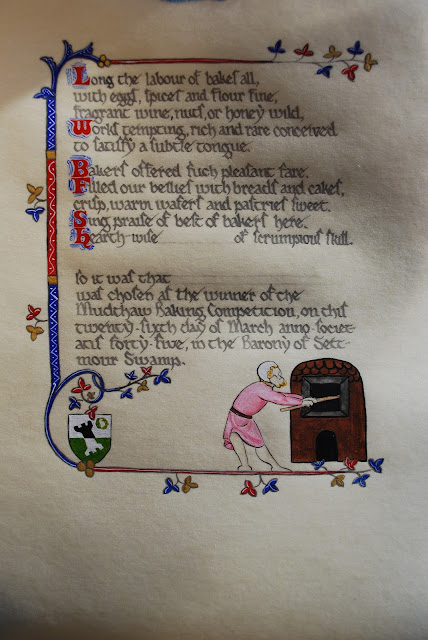 Long the labour of bakes all,
with eggs, spices and flour fine,
fragrant wine, nuts, or honey wild,
Works tempting, rich and rare conceived
to satisfy a subtle tongue.
Bakers offered such pleasant fare.
Filled our bellies with breads and cakes,
crisp, warm wafers and pastries sweet.
Sing praise of best of bakers here.
Hearth-wise of scrumpious skill.
so it was that
was chosen as the winner of the
Mudthaw Baking Competition, on this
twenty-sixth day of March anno societ-
atis forty-five, in the Barony of Sett-
mour Swamp.